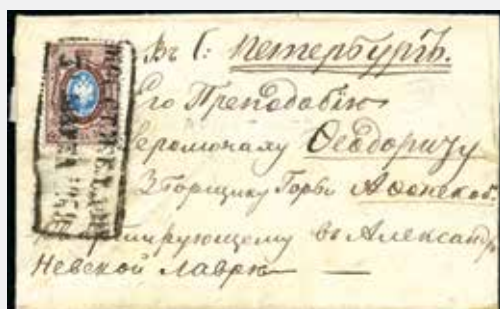 Въ С: Петербургъ.
Его Преподобію
Іеромонаху Ѳеодориту
Зборщику Горы Аѳонской.
Квартирующему въ Александр
Невской Лаврѣ